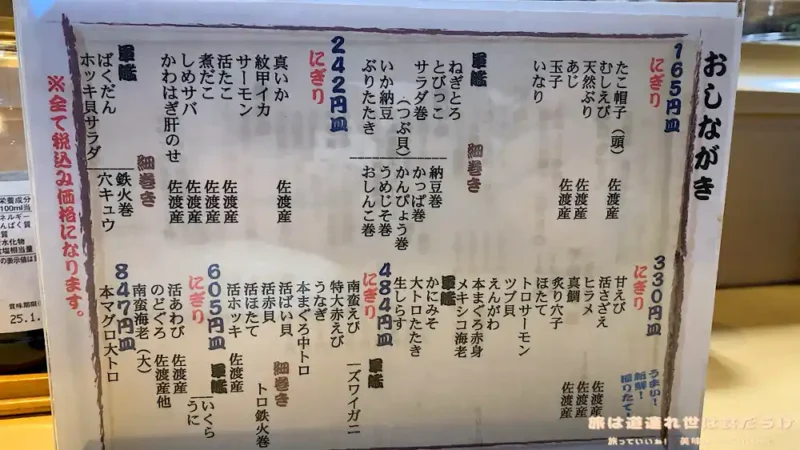 おしながき
165円皿
にぎり
たこ帽子(頭) 佐渡産
むしえび
天然ぶり 佐渡産
あじ 佐渡産
玉子
いなり
軍艦
ねぎとろ
とびっこ
サラダ巻
(つぶ貝)
いか納豆
ぶりたたき
細巻き
納豆巻
かっぱ巻
かんぴょう巻
うめじそ巻
おしんこ巻
242円皿
にぎり
真いか 佐渡産
紋甲イカ
サーモン
活たこ 佐渡産
煮だこ 佐渡産
しめサバ 佐渡産
かわはぎ肝のせ 佐渡産
軍艦
ばくだん
ホッキ貝サラダ
細巻き
鉄火巻
穴キュウ
※全て税込み価格になります。
うまい!
新鮮!
握りたて!
330円皿
にぎり
甘えび
活さざえ 佐渡産
ヒラメ 佐渡産
真鯛 佐渡産
炙り穴子
ほたて
トロサーモン
ツブ貝
えんがわ
本まぐろ赤身
メキシコ海老
軍艦
かにみそ
大トロたたき
生しらす
484円皿
にぎり
南蛮えび
特大赤えび
うなぎ
本まぐろ中トロ
活ばい貝
活赤貝
活ほたて
活ホッキ 佐渡産
軍艦
ズワイガニ
細巻き
トロ鉄火巻
605円皿
にぎり
活あわび 佐渡産
のどぐろ 佐渡産他
南蛮海老(大)
軍艦
いくら
うに
847円皿
本マグロ大トロ
栄養成分
100ml当
ネルギー
んぱく質
質
水化物
塩相当量
の表示値は
賞味期限
25.1.
旅は道連れ世は
旅っていいね! 美味